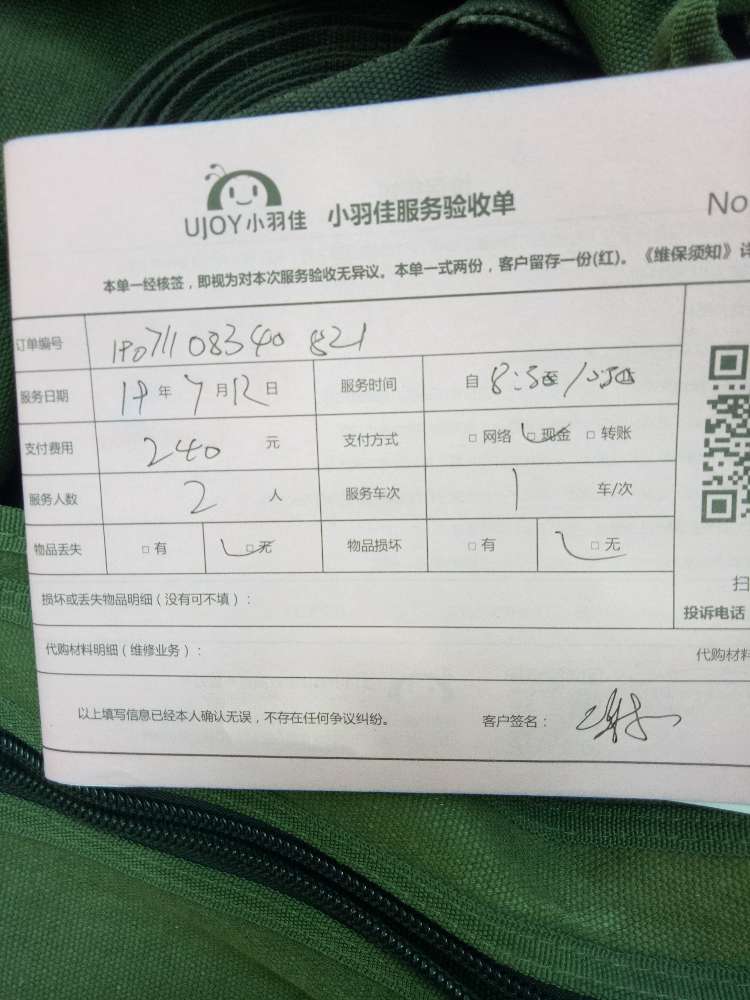 UJOY小羽佳 小羽佳服务验收单 No
本单一经核签，即视为对本次服务验收无异议。本单一式两份，客户留存一份(红)。《维保须知》详
订单编号 180711 08340 821
服务日期 18 年 7 月 12 日 服务时间 自 8:30 至 10:30
支付费用 240 元 支付方式 □ 网络 □ 现金 □ 转账
服务人数 2 人 服务车次 1 车/次
物品丢失 □ 有 □ 无 物品损坏 □ 有 □ 无
扫
损坏或丢失物品明细（没有可不填）： 投诉电话
代购材料明细（维修业务）： 代购材料
以上填写信息已经本人确认无误，不存在任何争议纠纷。 客户签名：